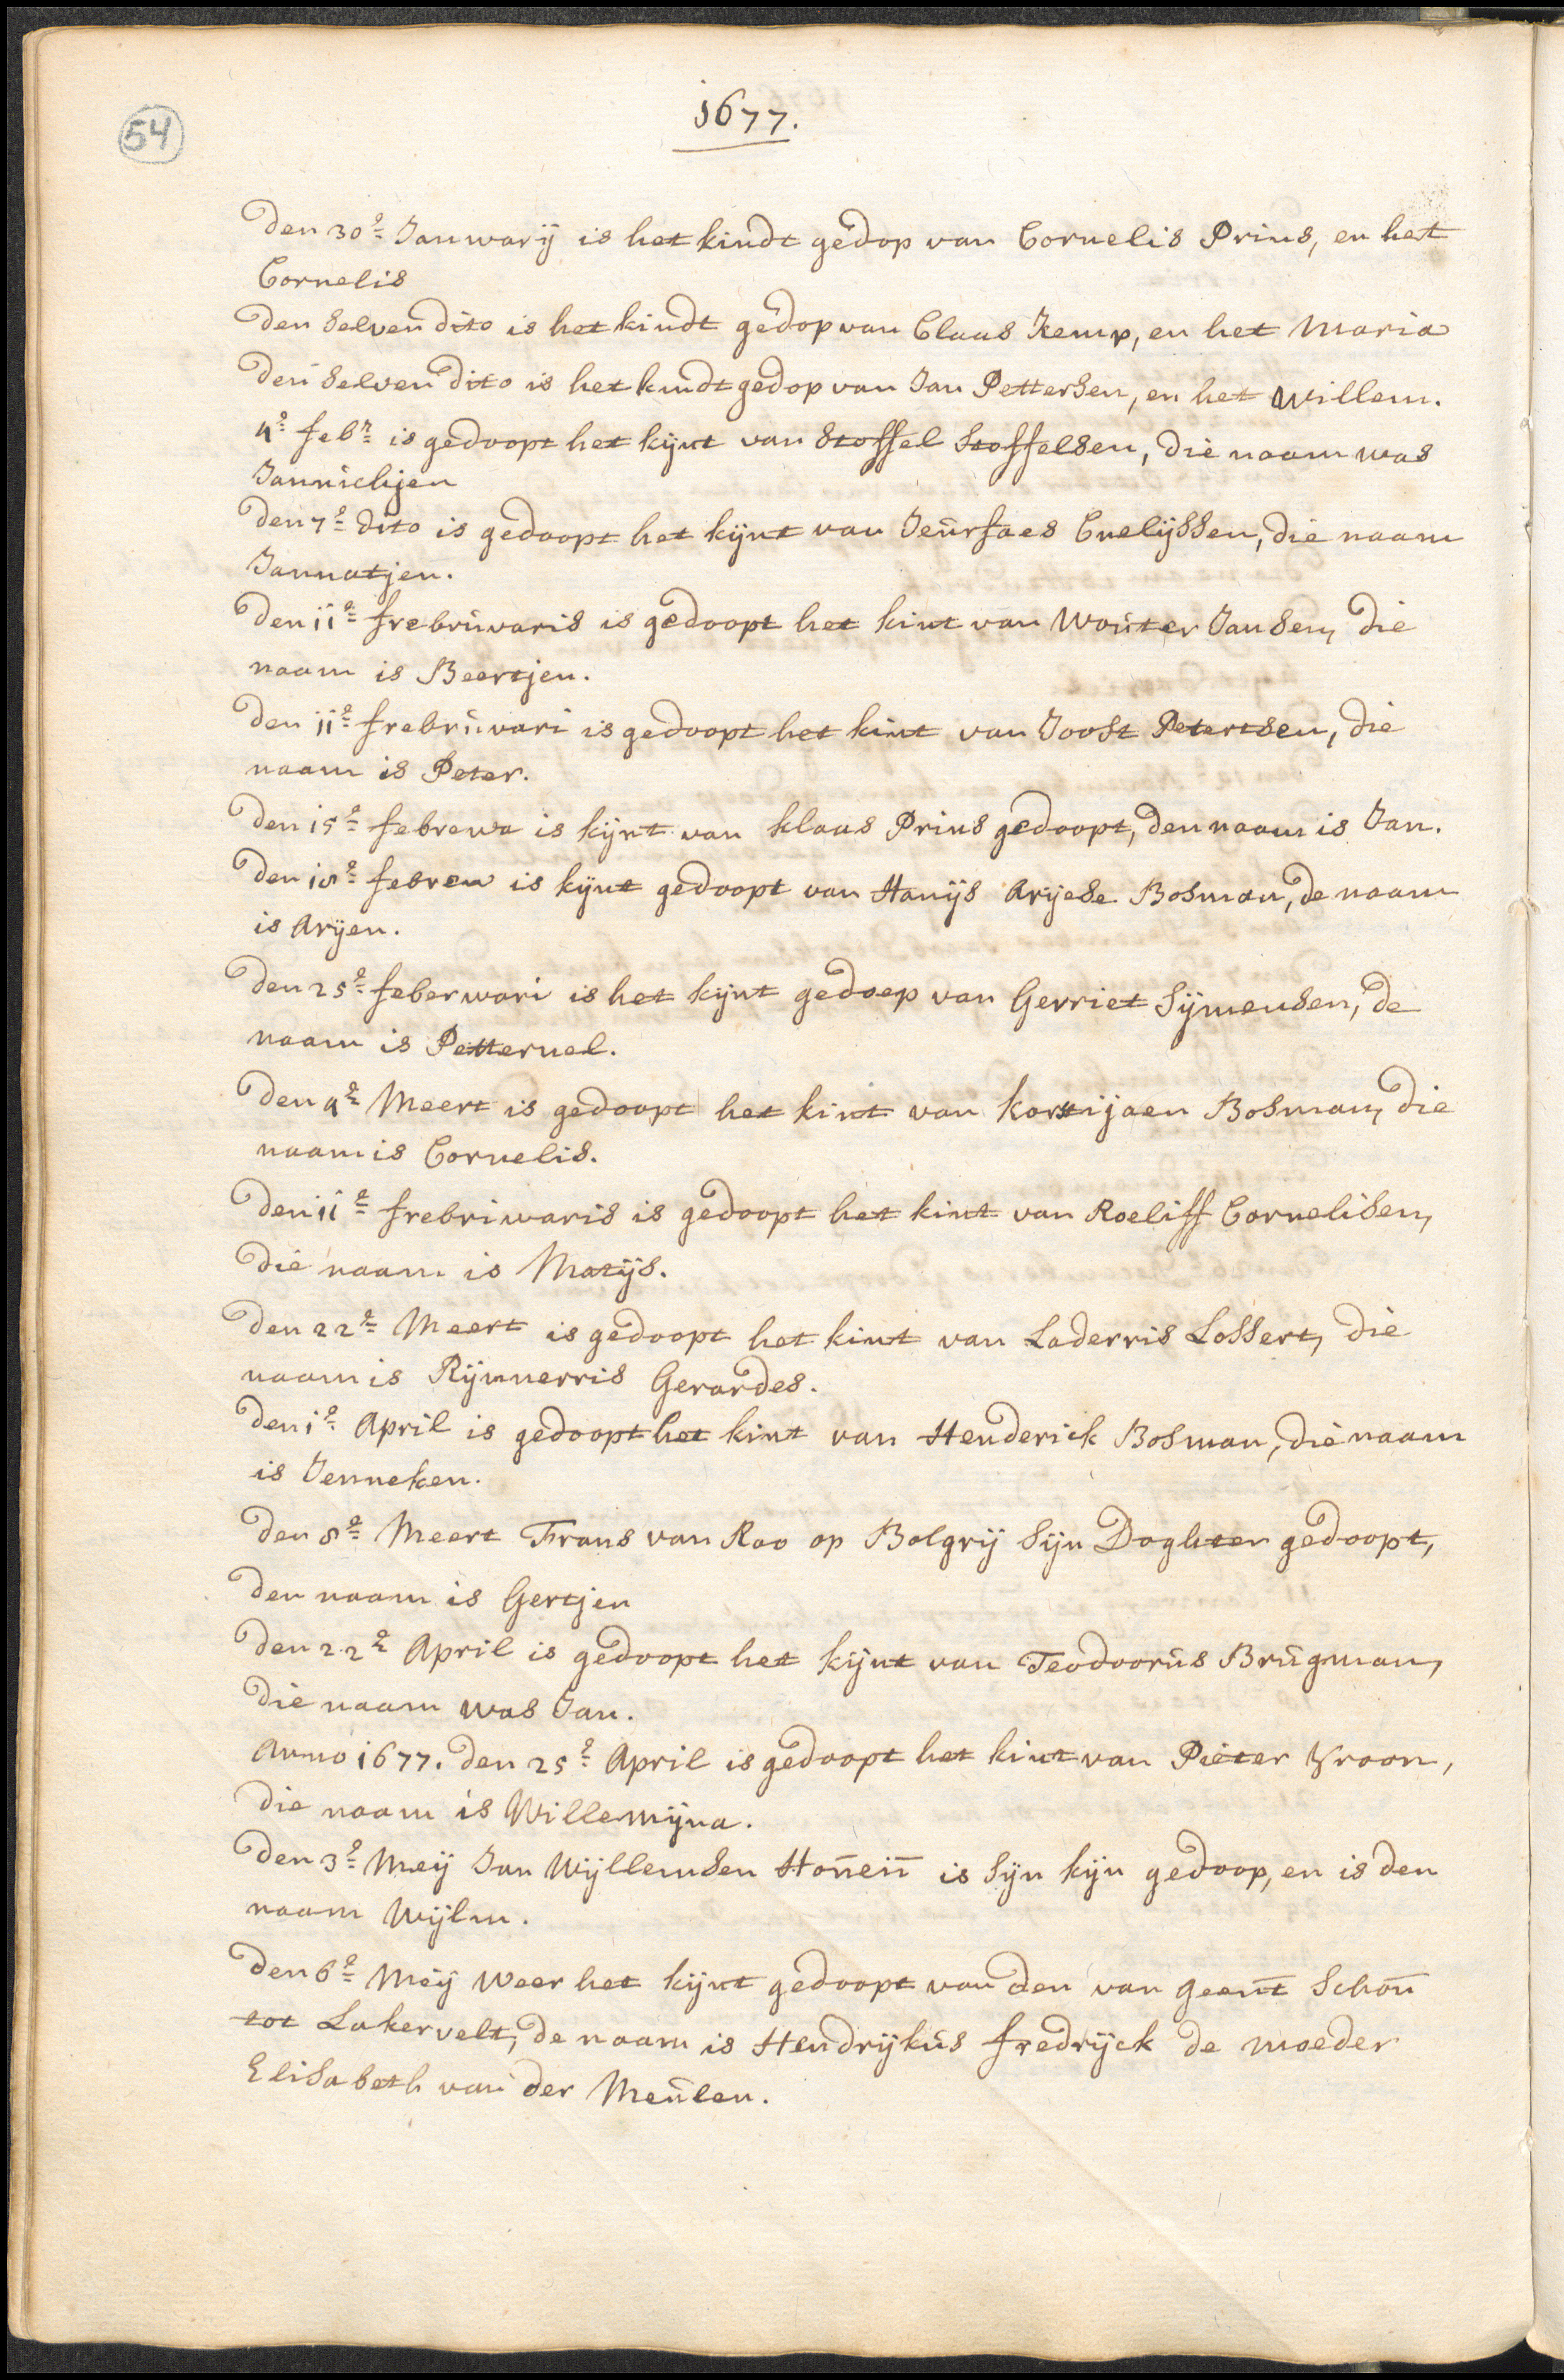 54
1677.
Den 30e Januwarij is het kindt gedop van Cornelis Prins, en het
Cornelis
Den selven dito is het kindt gedop van Claas Kemp, en het Maria
Den selven dito is het kindt gedop van Jan Pettersen, en het Willem.
4e febr is gedoopt het kijnt van Stoffel Stoffelsen, die naam was
Jannichjen
Den 7e dito is gedoopt het kijnt van Jeurfaes Cnelijssen, die naam
Jannatjen.
Den 11e frebruwaris is gedoopt het kint van Wouter Jansen, die
naam is Beertjen.
Den 11e frebruwari is gedoopt het kint van Joost Petertsen, die
naam is Peter.
Den 15e febrewa is kijnt van klaas Prins gedoopt, den naam is Jan.
Den 18e febrew is kijnt gedoopt van Hanijs Arijese Bosman, de naam
is Arijen.
Den 25e feberwari is het kijnt gedoep van Gerriet Sijmensen, de
naam is Petternel.
Den 4e Meert is gedoopt het kint van korstijaen Bosman, die
naam is Cornelis.
Den 11e frebriwaris is gedoopt het kint van Roeliff Cornelisen,
die naam is Matijs.
Den 22e Meert is gedoopt het kint van Laderris Lossert, die
naam is Rijnnerris Gerardes.
Den 1e April is gedoopt het kint van Henderick Bosman, die naam
is Jenneken.
Den 8e Meert Frans van Roo op Bolgrij Sijn Doghter gedoopt,
den naam is Gertjen
Den 22e April is gedoopt het kijnt van Teodoorus Brugman,
die naam was Jan.
Anno 1677. Den 25e April is gedoopt het kint van Pieter Vroon,
die naam is Willemijna.
Den 3e Meij Jan Wijllemsen is Sijn kijn gedoop, en is den
naam Wijlm.
Den 6e Meij Weer het kijnt gedoopt van den van geent Schou
tot Lakervelt, de naam is Hendrijkus fredrijck de moeder
Elisabeth van der Meulen.